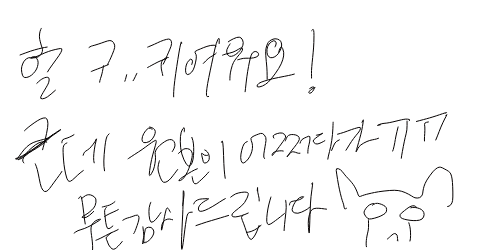 헐 ㅋ,, 커여워요!
근데 원본이 어쩌다가 ㅠㅠ
무튼 감사드립니다